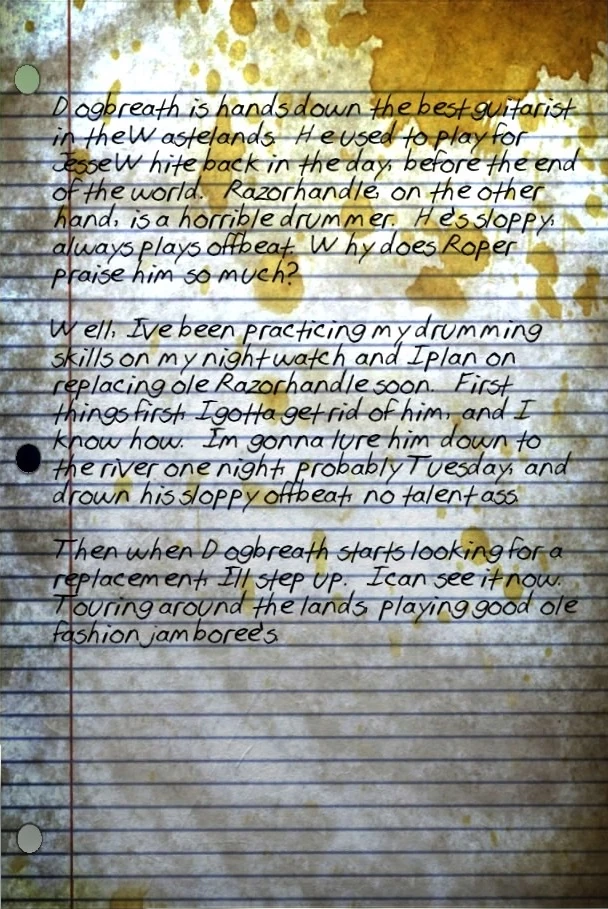 Dogbreath is hands down the best guitarist
in the Wastelands. He used to play for
Jesse White back in the day, before the end
of the world. Razorhandle, on the other
hand, is a horrible drummer. He's sloppy,
always plays offbeat. Why does Roper
praise him so much?
Well, I've been practicing my drumming
skills on my night watch and I plan on
replacing ole Razorhandle soon. First
things first, I gotta get rid of him, and I
know how. I'm gonna lure him down to
the river one night, probably Tuesday, and
drown his sloppy offbeat, no talent ass.
Then when Dogbreath starts looking for a
replacement, I'll step up. I can see it now.
Touring around the lands, playing good ole
fashion jamboree's.